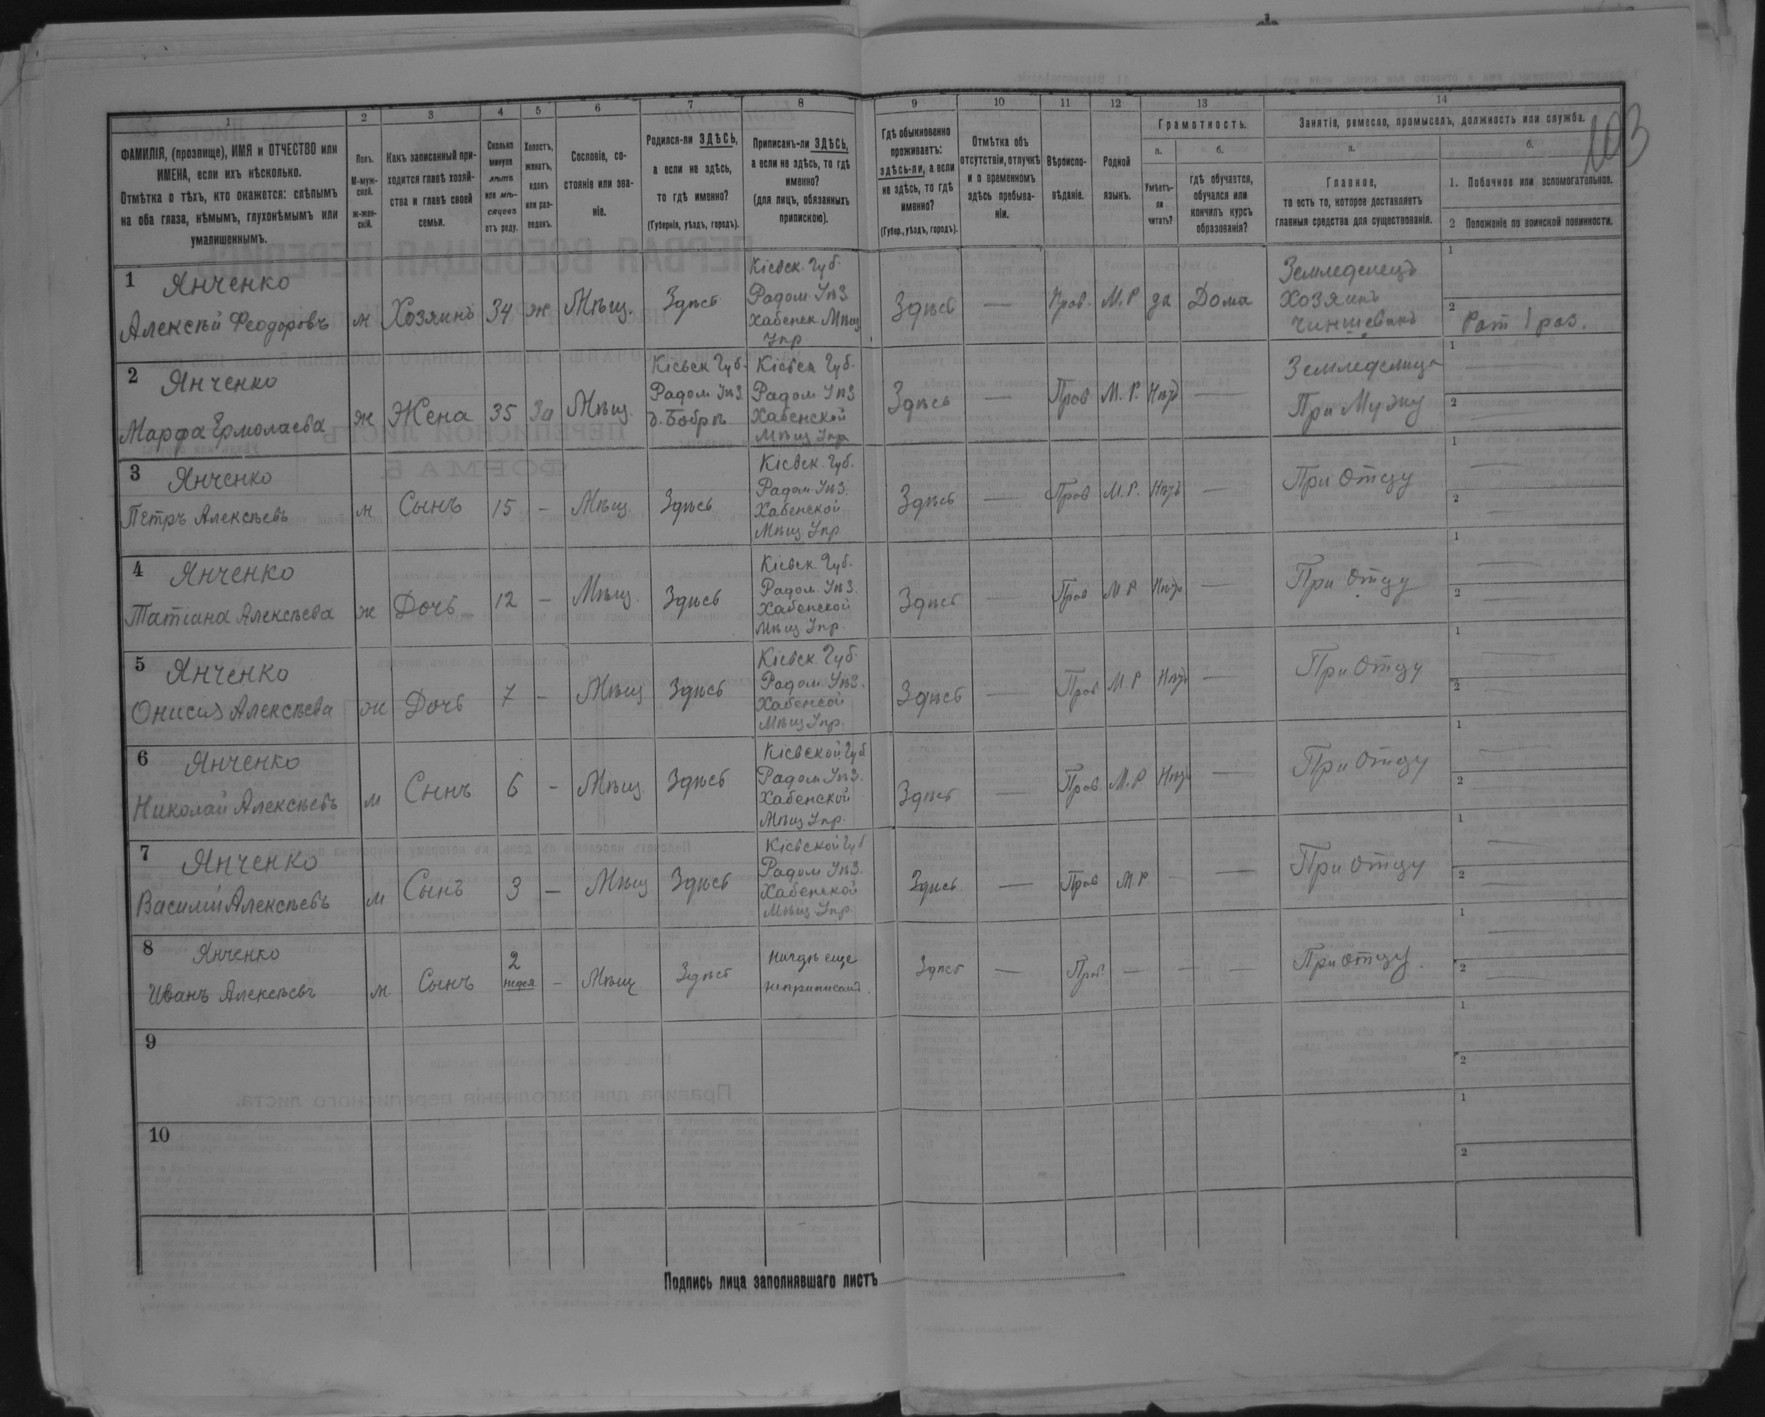 103
1 2 3 4 5 6 7 8 9 10 11 12 13 14
ФАМИЛІЯ, (прозвище), ИМЯ и ОТЧЕСТВО или
ИМЕНА, если ихъ нѣсколько.
Отмѣтка о тѣхъ, кто окажется: слѣпымъ
на оба глаза, нѣмымъ, глухонѣмымъ или
умалишеннымъ.
Полъ.
М-муж-
ской.
ж-жен-
скій.
Какъ записанный при-
ходится главѣ хозяй-
ства и главѣ своей
семьи.
Сколько
минуло
лѣтъ
или мѣ-
сяцевъ
отъ роду.
Холостъ,
женатъ,
вдовъ
или раз-
веденъ.
Сословіе, со-
стояніе или зва-
ніе.
Родился-ли ЗДѢСЬ,
а если не здѣсь,
то гдѣ именно?
(Губернія, уѣздъ, городъ).
Приписанъ-ли ЗДѢСЬ,
а если не здѣсь, то гдѣ
именно?
(для лицъ, обязанныхъ
припискою).
Гдѣ обыкновенно
проживаетъ:
здѣсь-ли, а если
не здѣсь, то гдѣ
именно?
(Губер., уѣздъ, городъ).
Отмѣтка объ
отсутствіи, отлучкѣ
и о временномъ
здѣсь пребыва-
ніи.
Вѣроиспо-
вѣданіе.
Родной
языкъ.
Грамотность.
а.
Умѣетъ-
ли
читать?
б.
гдѣ обучается,
обучался или
кончилъ курсъ
образованія?
Занятіе, ремесло, промыселъ, должность или служба.
а.
Главное,
то есть то, которое доставляетъ
главныя средства для существованія.
б.
1. Побочное или вспомогательное.
2 Положеніе по воинской повинности.
1 Янченко
Алексѣй Феодоровъ
м Хозяинъ 34 ж Мѣщ. Здѣсь
Кіевск. Губ.
Радом. Уѣз.
Хабенск. Мѣщ
Упр
Здѣсь — Прав. М.Р да Дома
Земледелецъ
Хозяинъ
Чиншевикъ
1
2 Рат 1 раз.
2 Янченко
Марфа Ермолаева
ж Жена 35 За Мѣщ.
Кіевск Губ.
Радом Уѣз.
д. Бобръ
Кіевск Губ.
Радом Уѣз
Хабенской
Мѣщ Упр
Здѣсь — Прав М.Р. Нѣтъ —
Земледелица
При Мужу
1 —
2 —
3 Янченко
Петръ Алексѣевъ
м Сынъ 15 - Мѣщ. Здѣсь
Кіевск. Губ.
Радом. Уѣз.
Хабенской
Мѣщ Упр
Здѣсь — Прав М.Р. Нѣтъ —
При Отцу
1 —
2 —
4 Янченко
Татіана Алексѣева
ж Дочь 12 - Мѣщ. Здѣсь
Кіевск. Губ.
Радом Уѣз.
Хабенской
Мѣщ Упр.
Здѣсь — Прав М.Р Нѣтъ —
При Отцу
1 —
2 —
5 Янченко
Онисия Алексѣева
ж Дочь 7 - Мѣщ Здѣсь
Кіевск. Губ.
Радом. Уѣз.
Хабенсой
Мѣщ Упр.
Здѣсь — Прав М.Р Нѣтъ —
При Отцу
1 —
2 —
6 Янченко
Николай Алексѣевъ
м Сынъ 6 - Мѣщ Здѣсь
Кіевской Губ
Радом Уѣз.
Хабенской
Мѣщ Упр.
Здѣсь — Прав. М.Р Нѣтъ —
При Отцу
1 —
2 —
7 Янченко
Василій Алексѣевъ
м Сынъ 3 - Мѣщ Здѣсь
Кіевской Губ
Радом Уѣз.
Хабенской
Мѣщ Упр
Здѣсь — Прав М.Р - —
При Отцу
1 —
2 —
8 Янченко
Иванъ Алексѣевъ
м Сынъ 2
недел - Мѣщ Здѣсь
нигдѣ еще
неприписанъ
Здѣсь — Прав. — - —
При Отцу.
1 —
2 —
9
1
2
10
1
2
Подпись лица заполнявшаго листъ